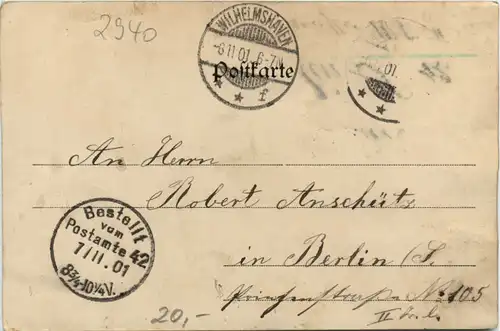 2940
WILHELMSHAVEN
-6.11.01. 6-7N.
* * f
Postkarte
.01.
* *
An Herrn
Robert Anschütz
in Berlin S.
Prinzenstraße No 105
II
Bestellt
vom
Postamte 42
7/11.01
8¾-10¼V.
20,-